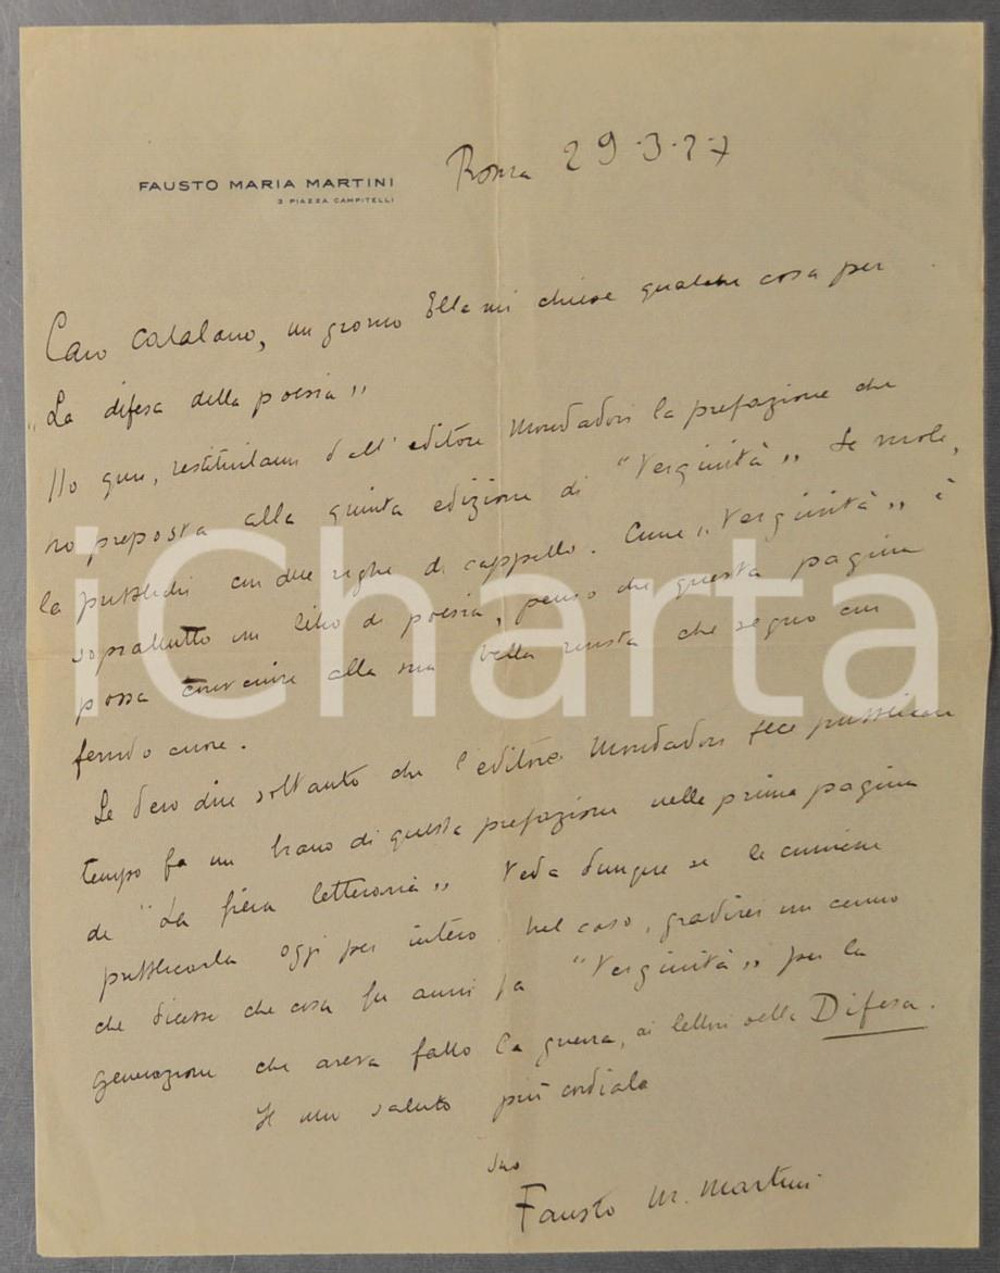 FAUSTO MARIA MARTINI
3 PIAZZA CAMPITELLI
Roma 29·3·27
Caro Catalano, un giorno Ella mi chiese qualche cosa per
"La difesa della poesia"
Ho qui, restituitami dall'editore Mondadori la prefazione che
ho preposta alla quinta edizione di "Verginità" Se vuole,
la pubblichi con due righe di cappello. Come "Verginità" è
soprattutto un libro di poesia, penso che questa pagina
possa convenire alla sua bella rivista che seguo con
fervido cuore.
Le devo dire soltanto che l'editore Mondadori fece pubblicare
tempo fa un brano di questa prefazione nella prima pagina
de "La fiera letteraria" Veda dunque se le conviene
pubblicarla oggi per intero. Nel caso, gradirei un cenno
che dicesse che cosa fu anni fa "Verginità" per la
generazione che aveva fatto la guerra, ai lettori della Difesa.
Il mio saluto più cordiale
Suo
Fausto M. Martini
iCharta